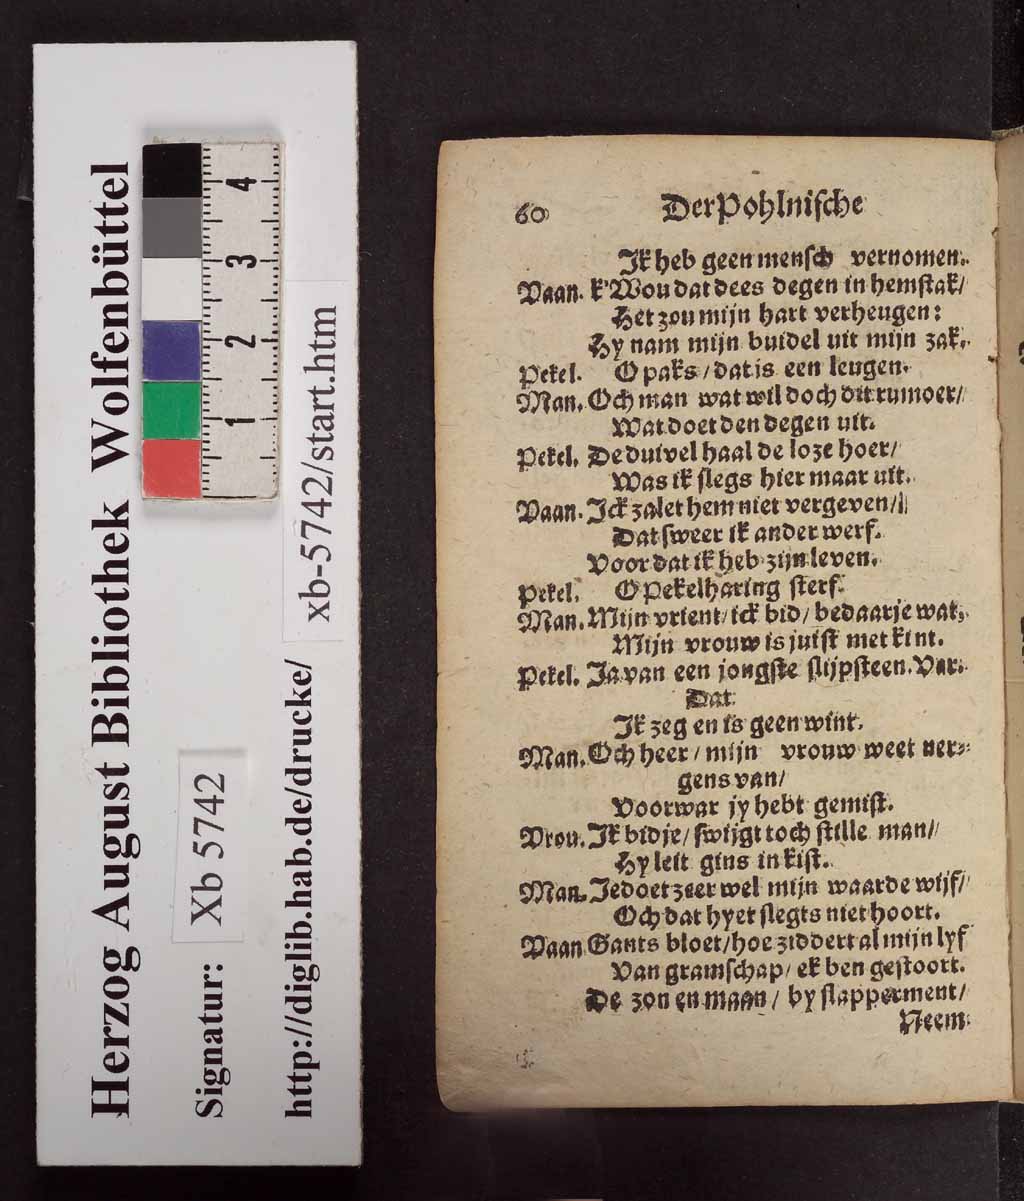 Herzog August Bibliothek Wolfenbüttel
Signatur: Xb 5742
http://diglib.hab.de/drucke/ xb-5742/start.htm
4
3
2
1
60 Der Pohlnische
Ik heb geen mensch vernomen.
Vaan. k'Wou dat dees degen in hem stak/
Het zou mijn hart verheugen:
Hy nam mijn buidel uit mijn zak.
Pekel. O paks / dat is een leugen.
Man. Och man wat wil doch dit rumoer/
Wat doet den degen uit.
Pekel. De duivel haal de loze hoer/
Was ik slegs hier maar uit.
Vaan. Ick zalet hem niet vergeven/
Dat sweer ik ander werf.
Voor dat ik heb zijn leven.
Pekel. O Pekelharing sterf.
Man. Mijn vrient/ ick bid/ bedaar je wat,
Mijn vrouw is juist met kint.
Pekel. Ja van een jongste slijpsteen. Var.
Dat
Ik zeg en is geen wint.
Man. Och heer / mijn vrouw weet ner-
gens van/
Voorwar jy hebt gemist.
Vrou. Ik bid je/ swijgt toch stille man/
Hy leit gins in kist.
Man. Je doet zeer wel mijn waarde wijf/
Och dat hy et slegts niet hoort.
Vaan Gants bloet/ hoe ziddert al mijn lyf
Van gramschap/ ek ben gestoort.
De zon en maan / by slapperment/
Neem